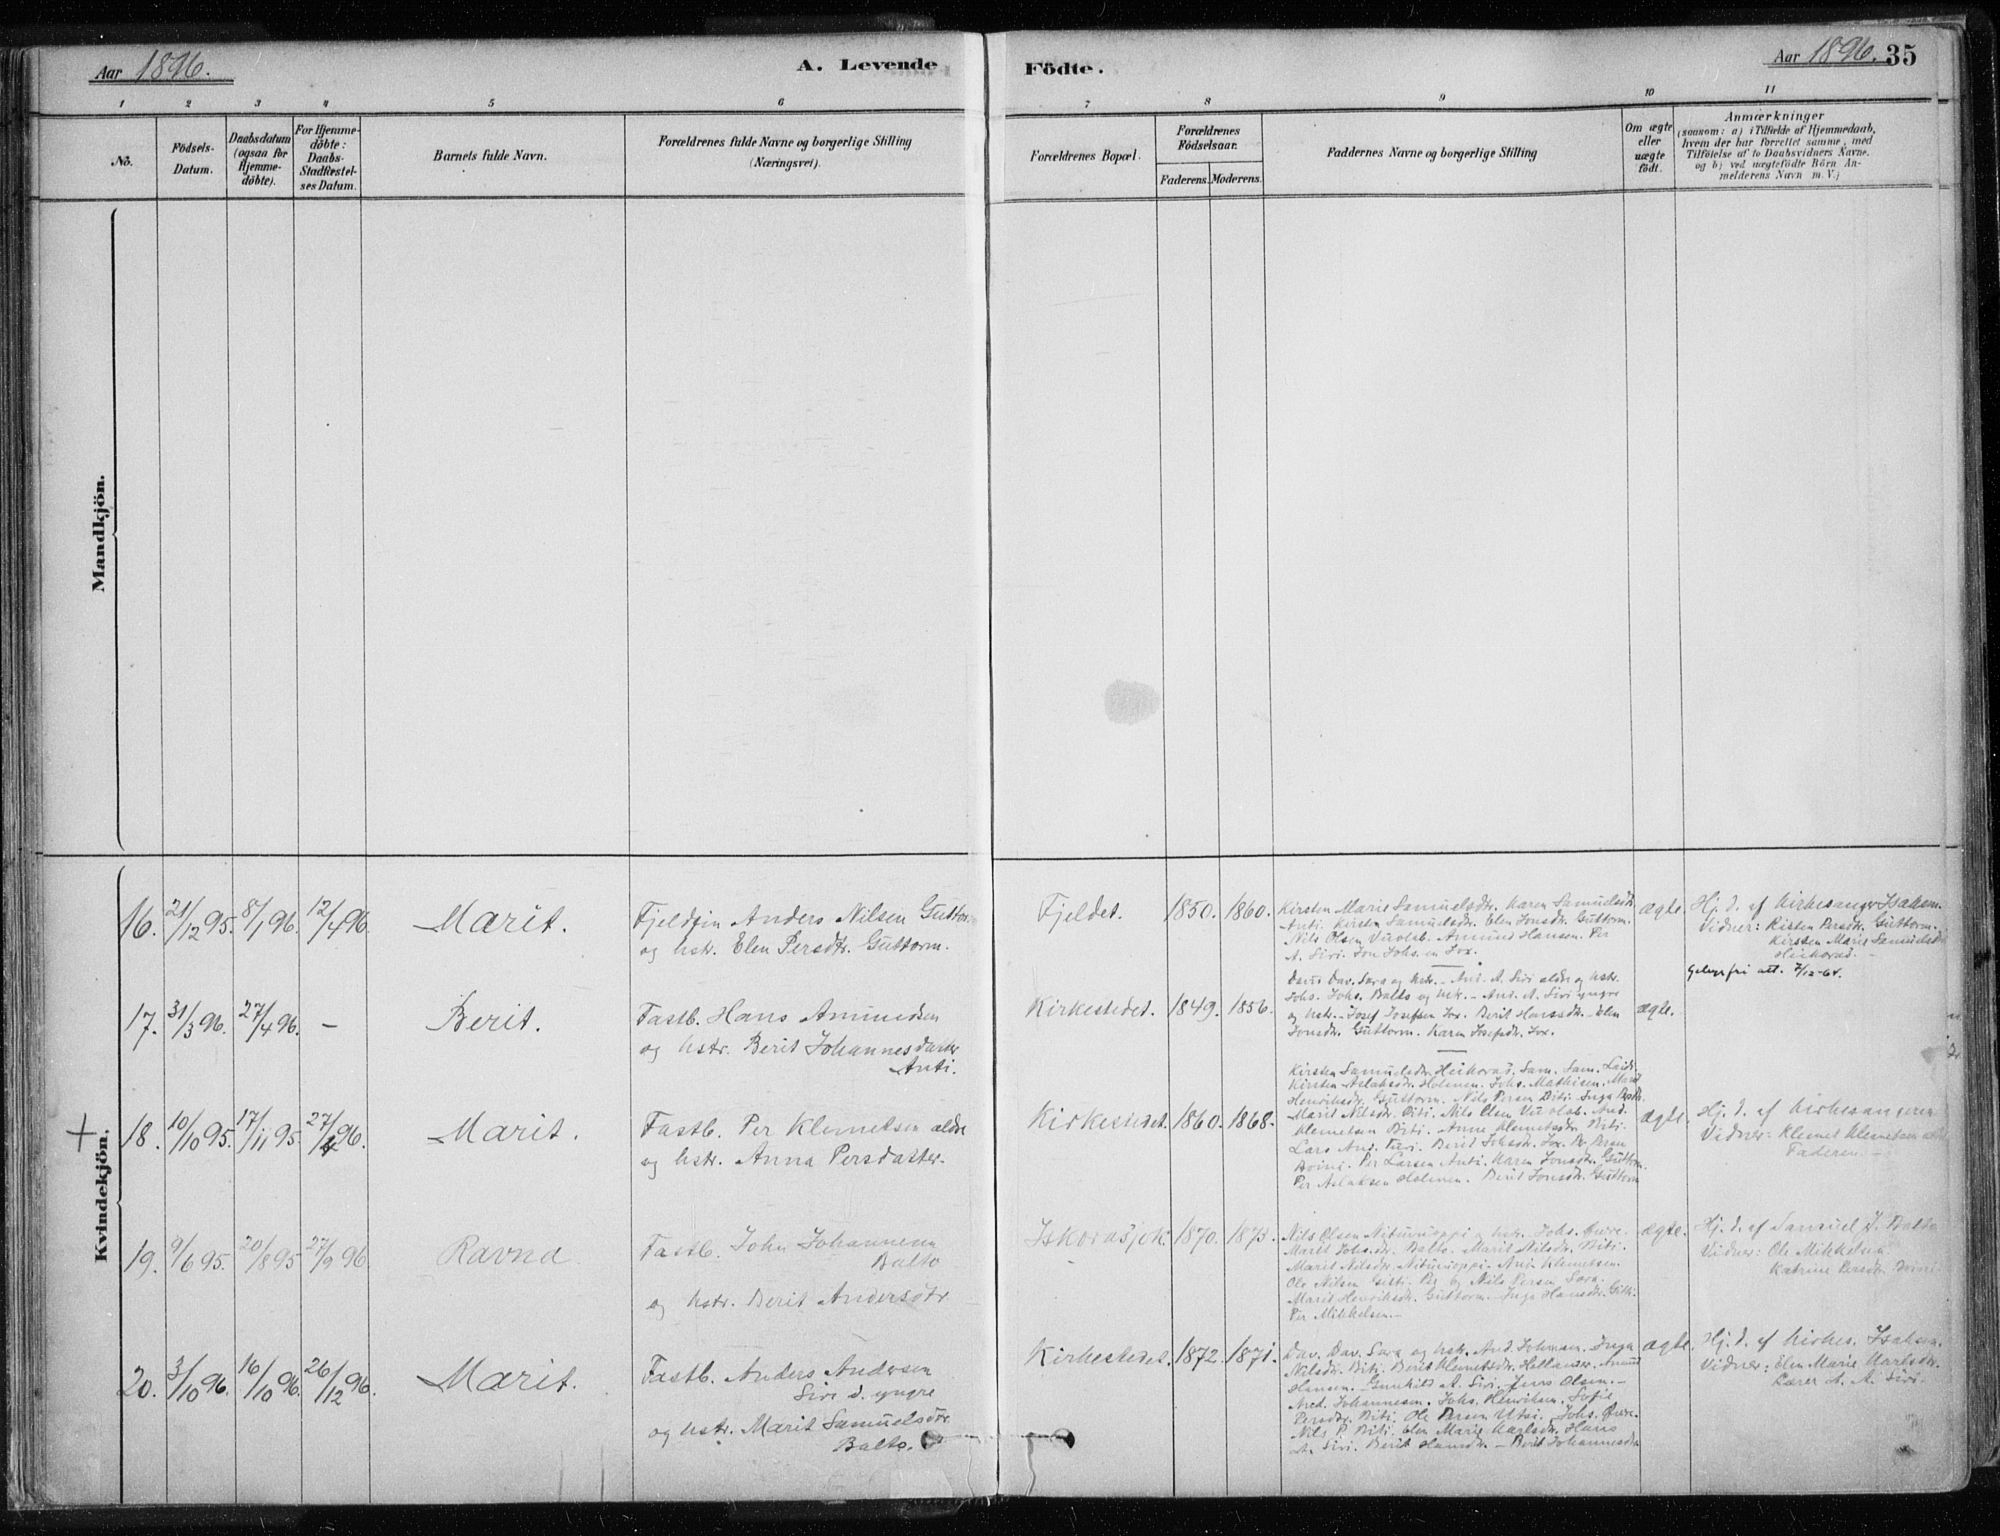 Aar 1896.
A. Levende
Födte.
Aar 1896. 35
1 2 3 4 5 6 7 8 9 10 11
No.
Födsels-
Datum.
Daabsdatum
(ogsaa for
Hjemme-
döbte).
For Hjemme-
döbte:
Daabs-
Stadfæstel-
ses Datum.
Barnets fulde Navn.
Forældrenes fulde Navne og borgerlige Stilling
(Næringsvei).
Forældrenes Bopæl.
Forældrenes
Födselsaar.
Faderens. Moderens.
Faddernes Navne og borgerlige Stilling
Om ægte
eller
uægte
födt.
Anmærkninger
(saasom: a) i Tilfælde af Hjemmedaab,
hvem der har forrettet samme, med
Tilföielse af to Daabsvidners Navne.
og b) ved uægtefödte Börn An-
melderens Navn m.V.)
Mandkjön.
Kvindekjön.
16. 21/12 95. 8/1 96. 12/4 96. Marit.
Fjeldfin Anders Nilsen Guttorm
og hstr. Elen Persdtr. Guttorm.
Fjeldet. 1850. 1860.
Kirsten Marie Samuelsdtr. Karen Samuelsdtr.
Anti. Kirsten Samuelsdtr. Elen Jonsdtr. Guttorm.
Nils Olsen Vuolab. Amund Hansen. Per
A. Siri. Jon Johs.en Jox.
ægte.
Hj. d. af Kirkesanger Isaksen.
Vidner: Kisten Persdtr. Guttorm.
Kirsten Marie Samuelsdtr.
Heikorad.
Gebyrfri att. 7/12-64.
17. 31/3 96. 27/4 96. - Berit.
Fastb. Hans Amundsen
og hstr. Berit Johannesdatter
Anti.
Kirkestedet. 1849. 1856.
Dav. Sara og hstr. - And. A. Siri ældre og hstr.
Johs. Johs. Balto og hstr. - And. A. Siri yngre
og hstr. - Josef Josefsen Jox. Berit Hansdtr. - Elen
Jonsdtr. Guttorm. Karen Josefsdtr. Jox.
ægte.
+ 18. 10/10 95. 17/11 95. 27/12 96. Marit.
Fastb. Per Klemetsen ældre
og hstr. Anna Persdatter.
Kirkestedet. 1860. 1868.
Kirsten Samuelsdtr. Heikorad. Sam. Sam. Laiti.
Kirsten Aslaksdtr. Holmen. Johs. Mathisen. Marit
Henriksdtr. Guttorm. Nils Persen Biti. Inga Persdtr.
Marit Nilsdtr. Biti. Nils Olsen Vuolab. And.
Klemetsen Biti. Anne Klemetsdtr. Biti.
Lars And. Berit Johsdtr. Jox. Per Persen
Boini. Per Larsen Anti. Karen Jonsdtr. Guttorm.
Per Aslaksen Holmen. Berit Jonsdtr. Guttorm
ægte.
Hj. d. af Kirkesangeren
Vidner: Klemet Klemetsen
Faderen.
19. 9/6 95. 20/8 95 27/9 96. Ravna
Fastb. John Johannesen
Balto
og hstr. Berit Andersdtr.
Iskorasjok. 1870. 1873.
Nils Olsen Niturioppi og hstr. Johs.
Marit Johs.dtr. Balto. Marit Nilsdtr. Biti.
Marit Nilsdtr. Niturioppi. And. Klemetsen.
Ole Nilsen Per og Nils Persen Sara.
Marit Henriksdtr. Guttorm. Inga Hansdtr.
Per Mikkelsen.-
ægte.
Hj. d. af Samuel J. Balto
Vidner: Ole Mikkelsen
Katrine Persdtr. Boini
20. 3/10 96. 16/10 96. 26/12 96. Marit.
Fastb. Anders Andersen
Siri d. yngre
og hstr. Marit Samuelsdtr.
Balto.
Kirkestedet. 1872. 1871.
Dav. Dav. Sara og hstr. And. Johnsen. Inga
Nilsdtr. Biti. Berit Klemetsdtr. Hellander. Amund
Hansen. Gunhild A. Siri. Jens Olsen.-
And. Johannesen. Johs. Henriksen. Sofie
Persdtr. Biti. Ole Persen Utsi. Johs.
Nils P. Biti. Elen Marie Karlsdtr. Hans
A. Siri. Berit Hansdtr. - Berit Johannesdtr.
ægte.
Hj. d. af Kirkes. Isaksen.
Vidner: Elen Marie Karlsdtr.
Lærer A. A. Siri.